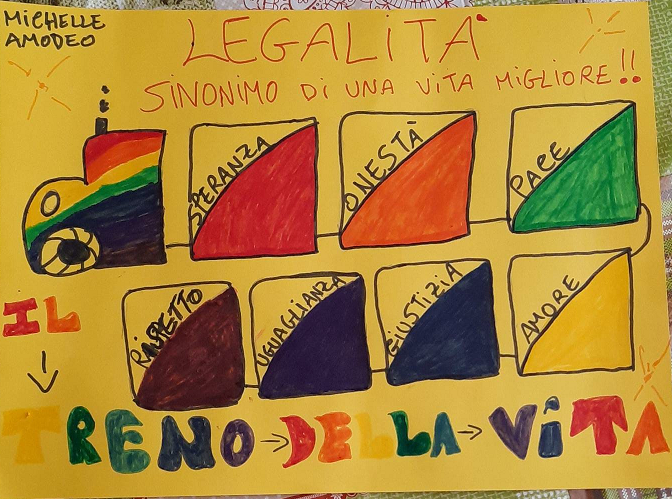 MiCHELLE
AMODEO
LEGALiTÀ
SiNONiMO Di UNA ViTA MiGLiORE!!
SPERANZA
ONESTÀ
PACE
RiSPETTO
UGUAGLiANZA
GiUSTiZiA
AMORE
IL
TRENO → DELLA → ViTA